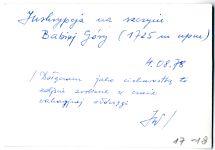 Inskrypcja na szczycie
Babiej Góry (1725 m npm)
4.08.78
/Dołączam jako ciekawostkę to
zdjęcie zrobione w czasie
wakacyjnej włóczęgi/
17-18